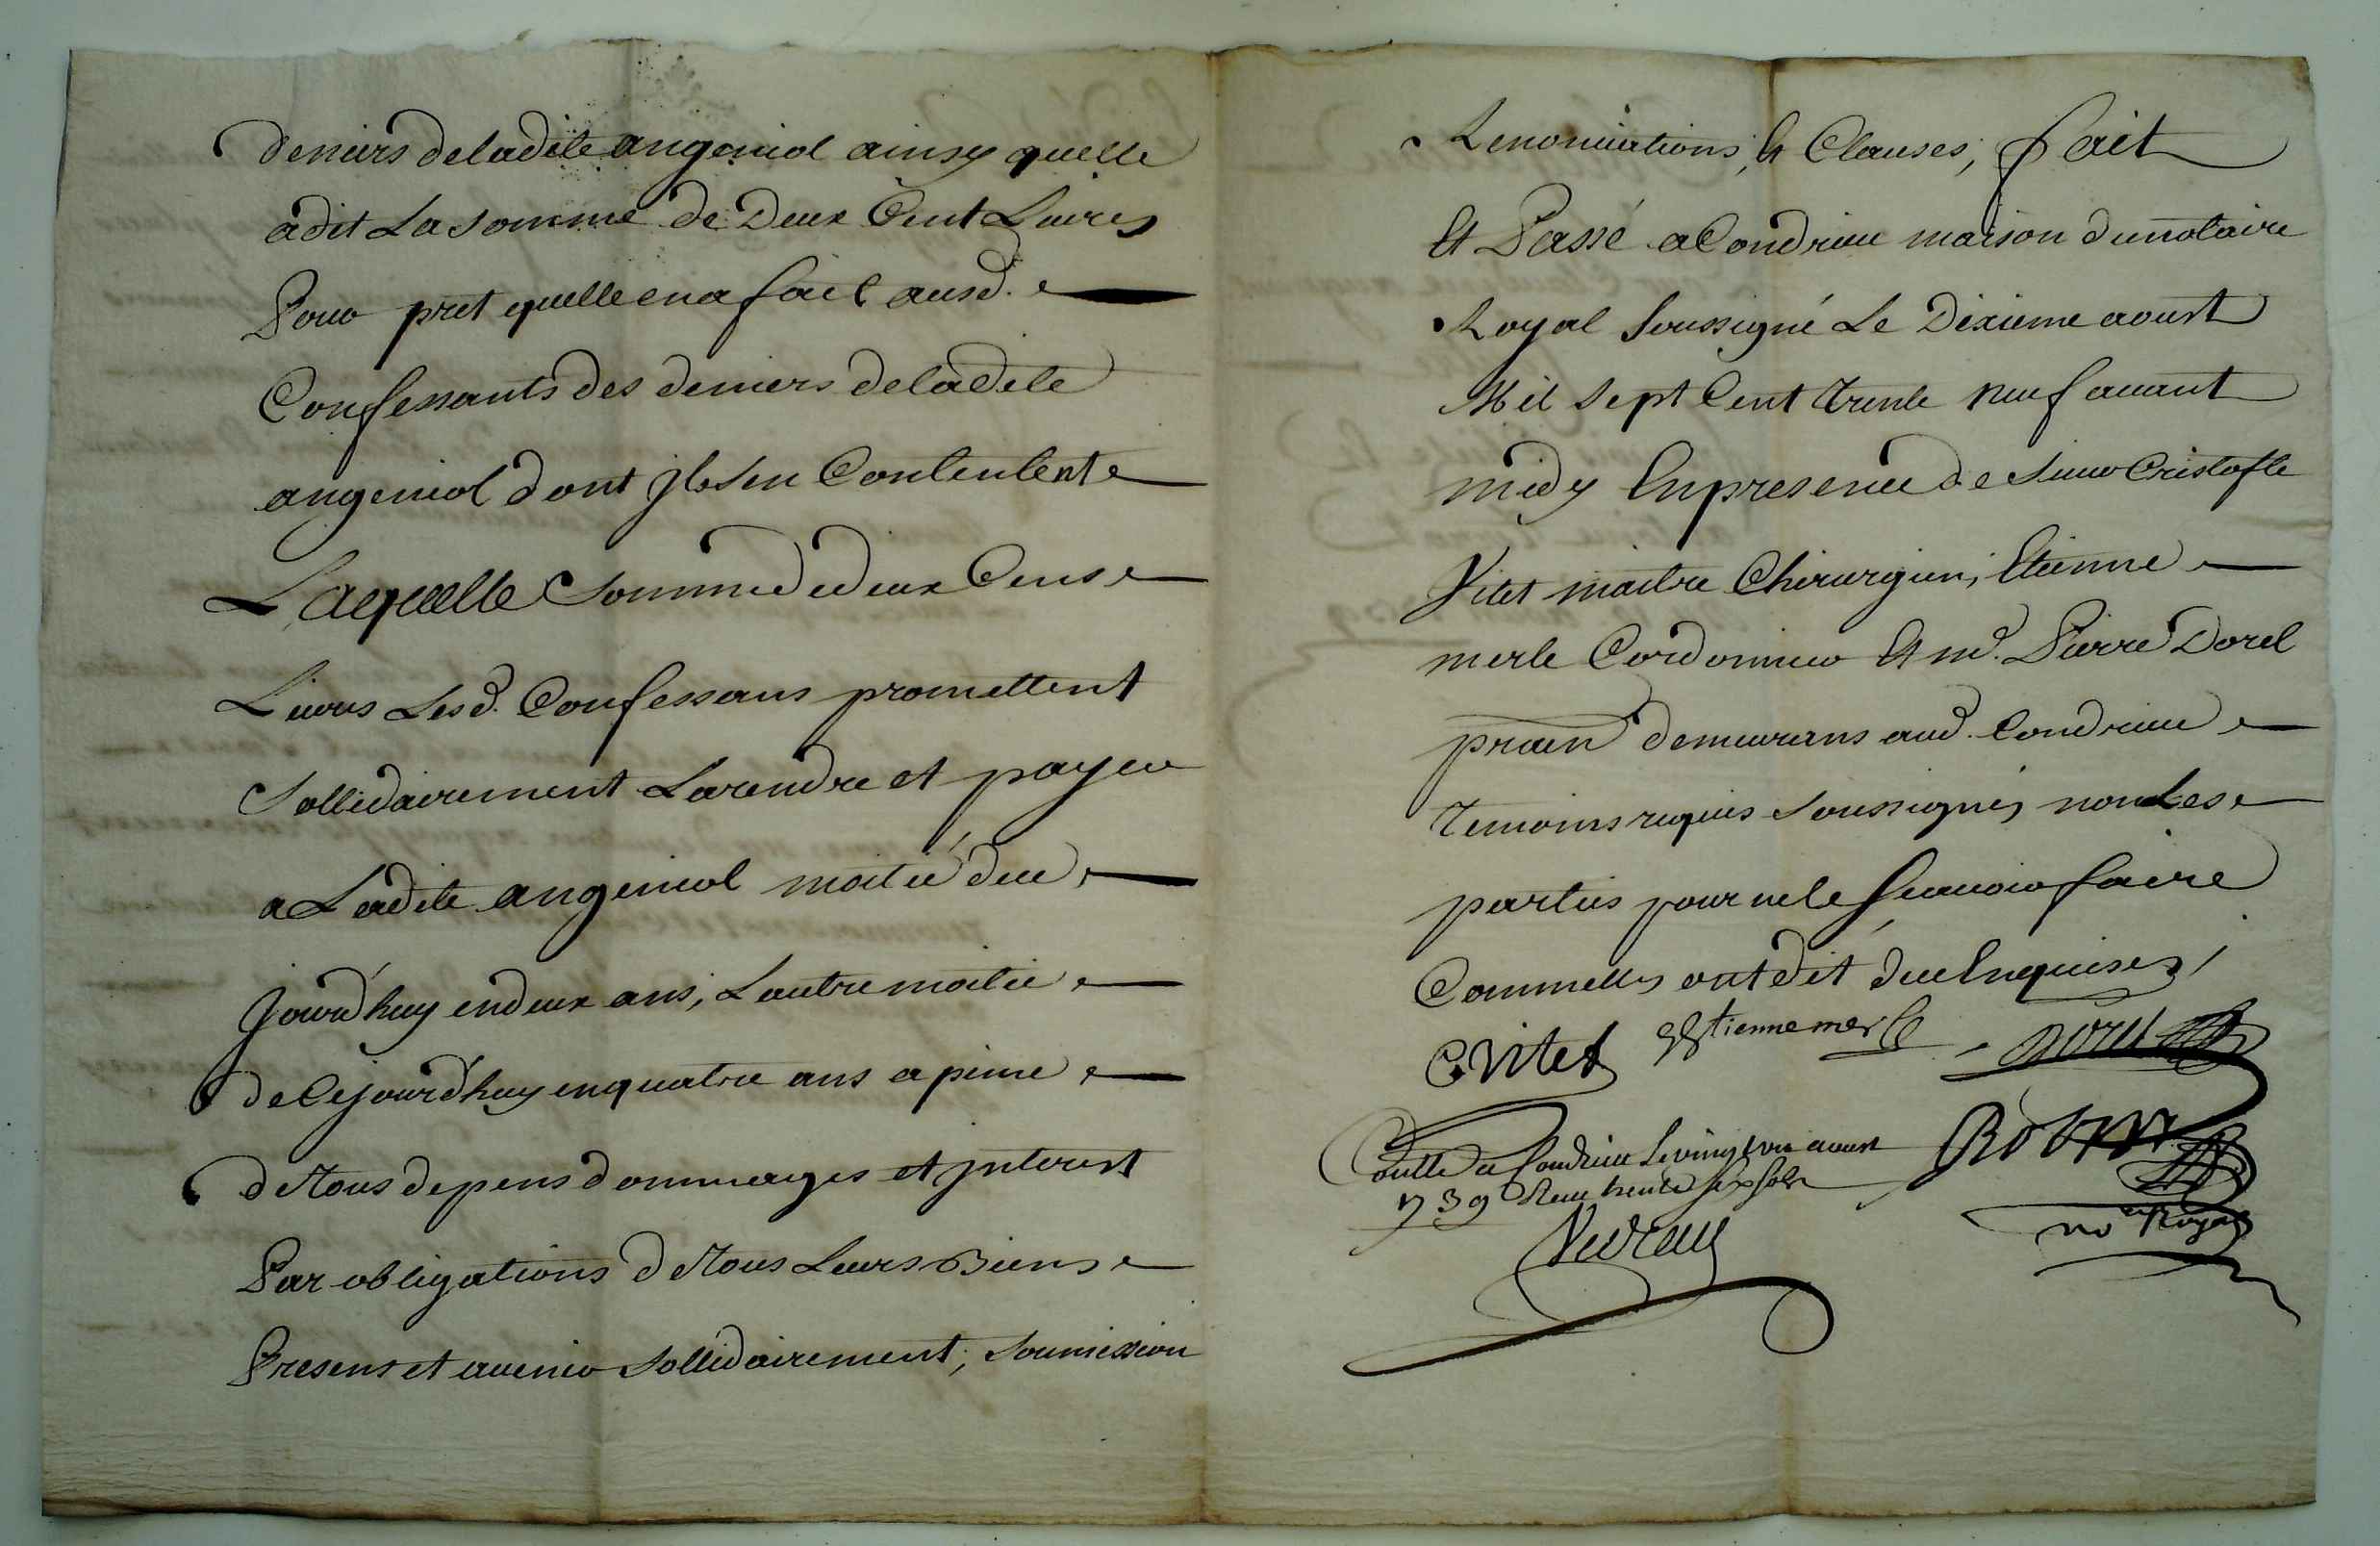 deniers deladite angeniol ainsy quelle
adit La somme de Deux Cent Livres
Pour pret quelle ena fait ausd.
Confessants des deniers deladite
angeniol dont Jls sen Contentent
Laquelle Somme dedeux Cens
Livres Lesd. Confessans promettent
Sollidairement Larendre et payer
a Ladite angeniol moitié dece
jourd'huy endeux ans, Lautre moitié
de Cejourd'huy enquatre ans apeine
de Tous depens dommages et Jnterest
Par obligations de Tous Leurs Biens
Presens et avenir Sollidairement, Soumission
Renonciations, & Clauses, fait
Et Passé a Condrieu maison dunotaire
Royal Soussigné Le Dixieme aoust
Mil Sept Cent Trente neuf avant
midy Enpresence de Sieur Cristofle
Vitet maitre Chirurgien, Etienne
merle Cordonnier Et md. Pierre Dorel
demeurans aud. Condrieu
Temoins requis Soussignés non Les
parties pour nele Scavoir faire
Commelles ontdit de ce Enquises,
C Vitet Estienne merle Dorel
Conlle a Condrieu Le vingt aoust
1739 Receu trente six sols
no.re Royal